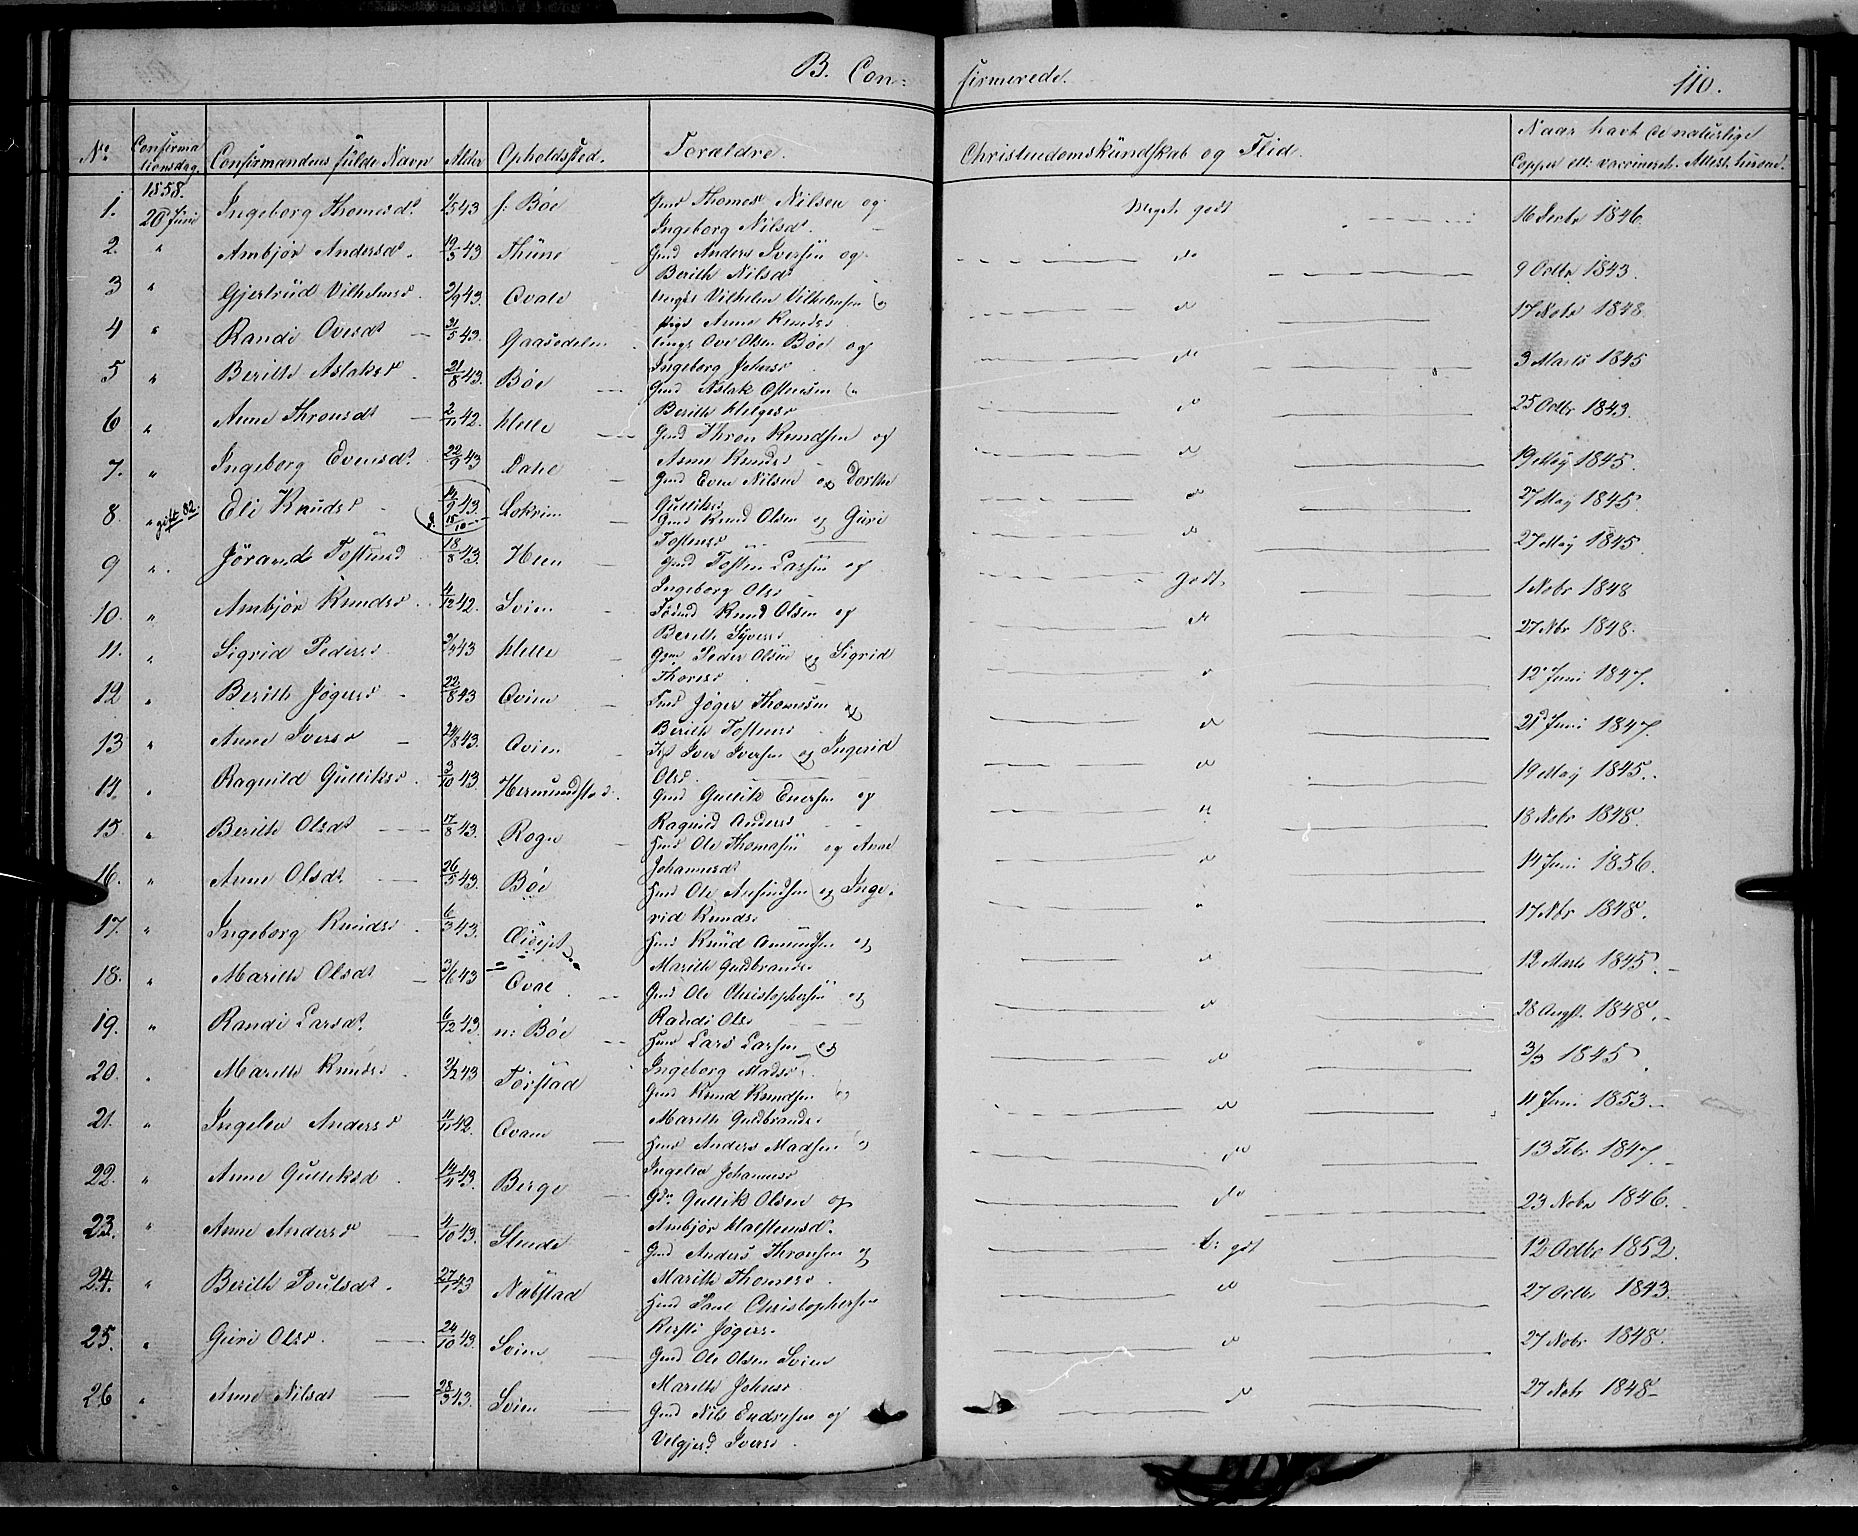 B. Con= firmerede. 110.
No Confirmationsdag Confirmandens fulde Navn Alder Opholdssted. Forældre. Christendomskundskab og Flid. Naar havt de naturlige Copper ell: vaccineret. Attest herom.
1. 1858. 20 Juni Ingeborg Thomesdt 43 s: Böe Gmd Thomes Nilsen og Ingeborg Nilsdt. Meget godt 1846.
2. " Ambjör Andersdt. 19/3 43 Thüne Gmd Anders Iversen og Berith Nilsdt do 9 Octbr 1843.
3 " Gjertrud Vilhelmsd. 2/9 43. Qvale Ungk Vilhelm Vilhelmsen og Pige Anne Knudsd do 17 Nobr 1848.
4 " Randi Ovesdt 31/5 43. Gaasedelen Ungk Ove Olsen Böe og Ingeborg Johnsd do 3 Marts 1845
5 " Berith Aslaksd 21/8 43. Böe Gmd Aslak Ostensen og Berith Helgesd do 25 Octbr 1843.
6 " Anne Thronsdt 2/11 42. Helle Gmd Thron Knudsen og Anne Knudsd do 19 May 1845.
7. " Ingeborg Evensdt. 22/9 43 Dahe Gmd Even Nilsen og Dorthe Gulliksd do 27 May 1845.
8. " gift 82. Eli Knudsd 14/9 43. d. 15/10 Lokrim Gmd Knud Olsen og Guri Tostensd do 27 May 1845.
9 " Jörand Tostensd 18/8 43. Heen Gmd Tosten Larsen og Ingeborg Olsd Godt. 1 Nobr 1848
10. " Ambjör Knudsd 4/12 42. Svien Knud Olsen og Berith Syversd do 27 Nbr 1848.
11. " Sigrid Pedersd 43 Helle Gmd Peder Olsen og Sigrid Thoresd do 12 Juni 1847.
12 " Berith Jögersd 22/8 43 Qvien Jöger Thomesen og Berith Tostensd do 21 Juni 1847.
13 " Anne Iversd 24/8 43. Qvien Iver Iversen og Ingerid Olsd. do 19 May 1845.
14. " Ragnild Gulliksd 3/10 43. Hermundstad. Gmd Gullik Enersen og Ragnild Andersd " 18 Nobr 1848.
15. " Berith Olsdt 17/8 43. Rogn Hmd Ole Thomesen og Anne Johannesdt do 14 Juni 1856.
16. " Anne Olsdt. 26/5 43. Böe Hmd Ole Amundsen og Ingerid Knudsd " 17 Nbr 1848.
17. " Ingeborg Knudsd 6/3 43. Hmd Knud Amundsen og Marith Guldbrandsd do 12 Marts 1845.
18. " Marith Olsdt 3/6 43 Qvale Gmd Ole Christophersen og Randi Olsd do 28 Augst. 1848.
19. " Randi Larsdt. 6/12 43. n: Böe Hmd Lars Larsen og Ingeborg Madsd. do 3/3 1845
20. " Marith Knudsd 3/2 43 Torstad Gmd Knud Knudsen og Marith Guldbrandsd do 11 Juni 1853.
21. " Ingelev Andersd 4/11 42. Qvam Hmd Anders Madsen og Ingelev Johannesd do 13 Febr 1847.
22. " Anne Gulliksd 14/11 43. Berge Gullik Olsen og Ambjör Halstensdt. do 23 Nobr 1846.
23. " Anne Andersd 4/10 43. Stende Gmd Anders Thronsen og Marith Thomesd. t: gdt 12 Octbr 1852.
24. " Berith Poulsdt. 27/9 43 Nöbstad Hmd Paul Christophersen Kersti Jögersd do 27 Octbr 1843.
25. " Guri Olsd. 24/10 43. Svien Gmd Ole Olsen Svien Marith Johnsd do 27 Nobr 1848.
26 " Anne Nilsdt 28/3 43. Svien Gmd Nils Endresen og Velgjerd Iversd. do 27 Nobr 1848